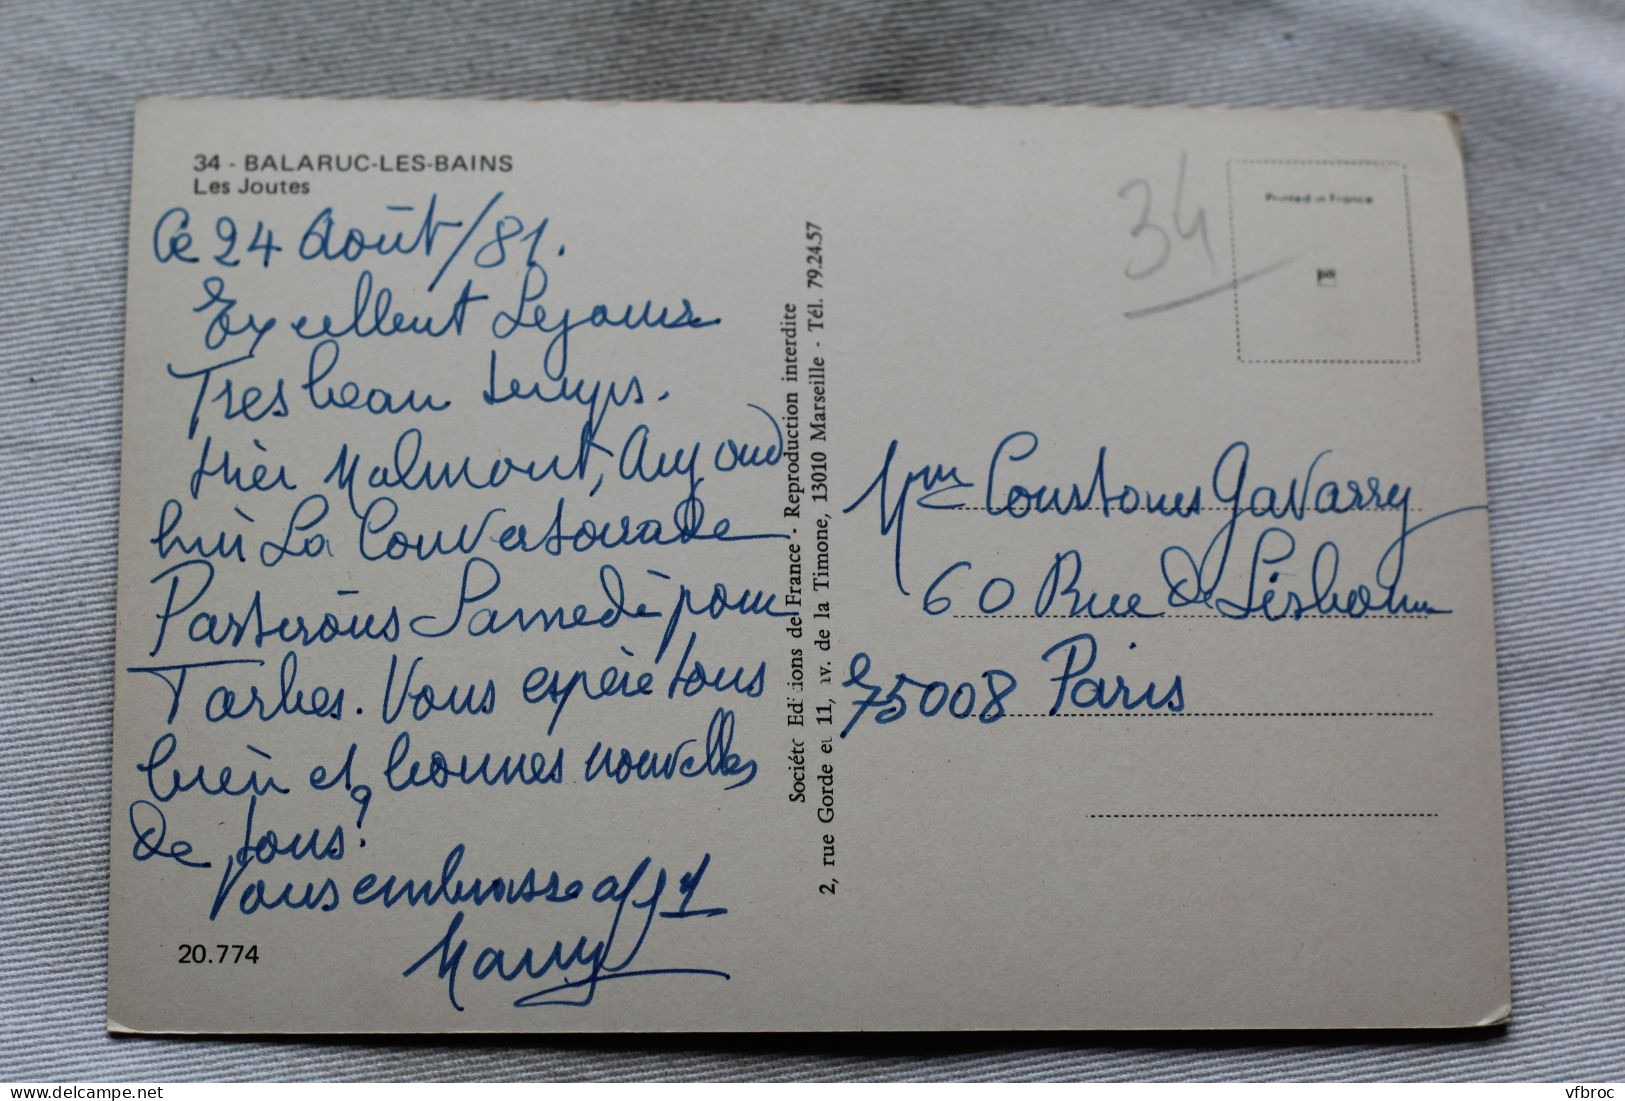 34 - BALARUC-LES-BAINS
Les Joutes
Ce 24 Août/81.
Excellent Sejour
Tres beau temps.
Hier Malmont, Aujourd
hui La Couvertoirade
Partirons Samedi pour
Tarbes. Vous espère tous
bien et bonnes nouvelles
De tous?
Vous embrasse aff
20.774
Société Editions de France - Reproduction interdite
2, rue Gorde et 11, av. de la Timone, 13010 Marseille - Tél. 79.24.57
34
Printed in France
Mme Coustous Gavarry
60 Rue de Lisbonne
75008 Paris
delcampe.net
vfbroc